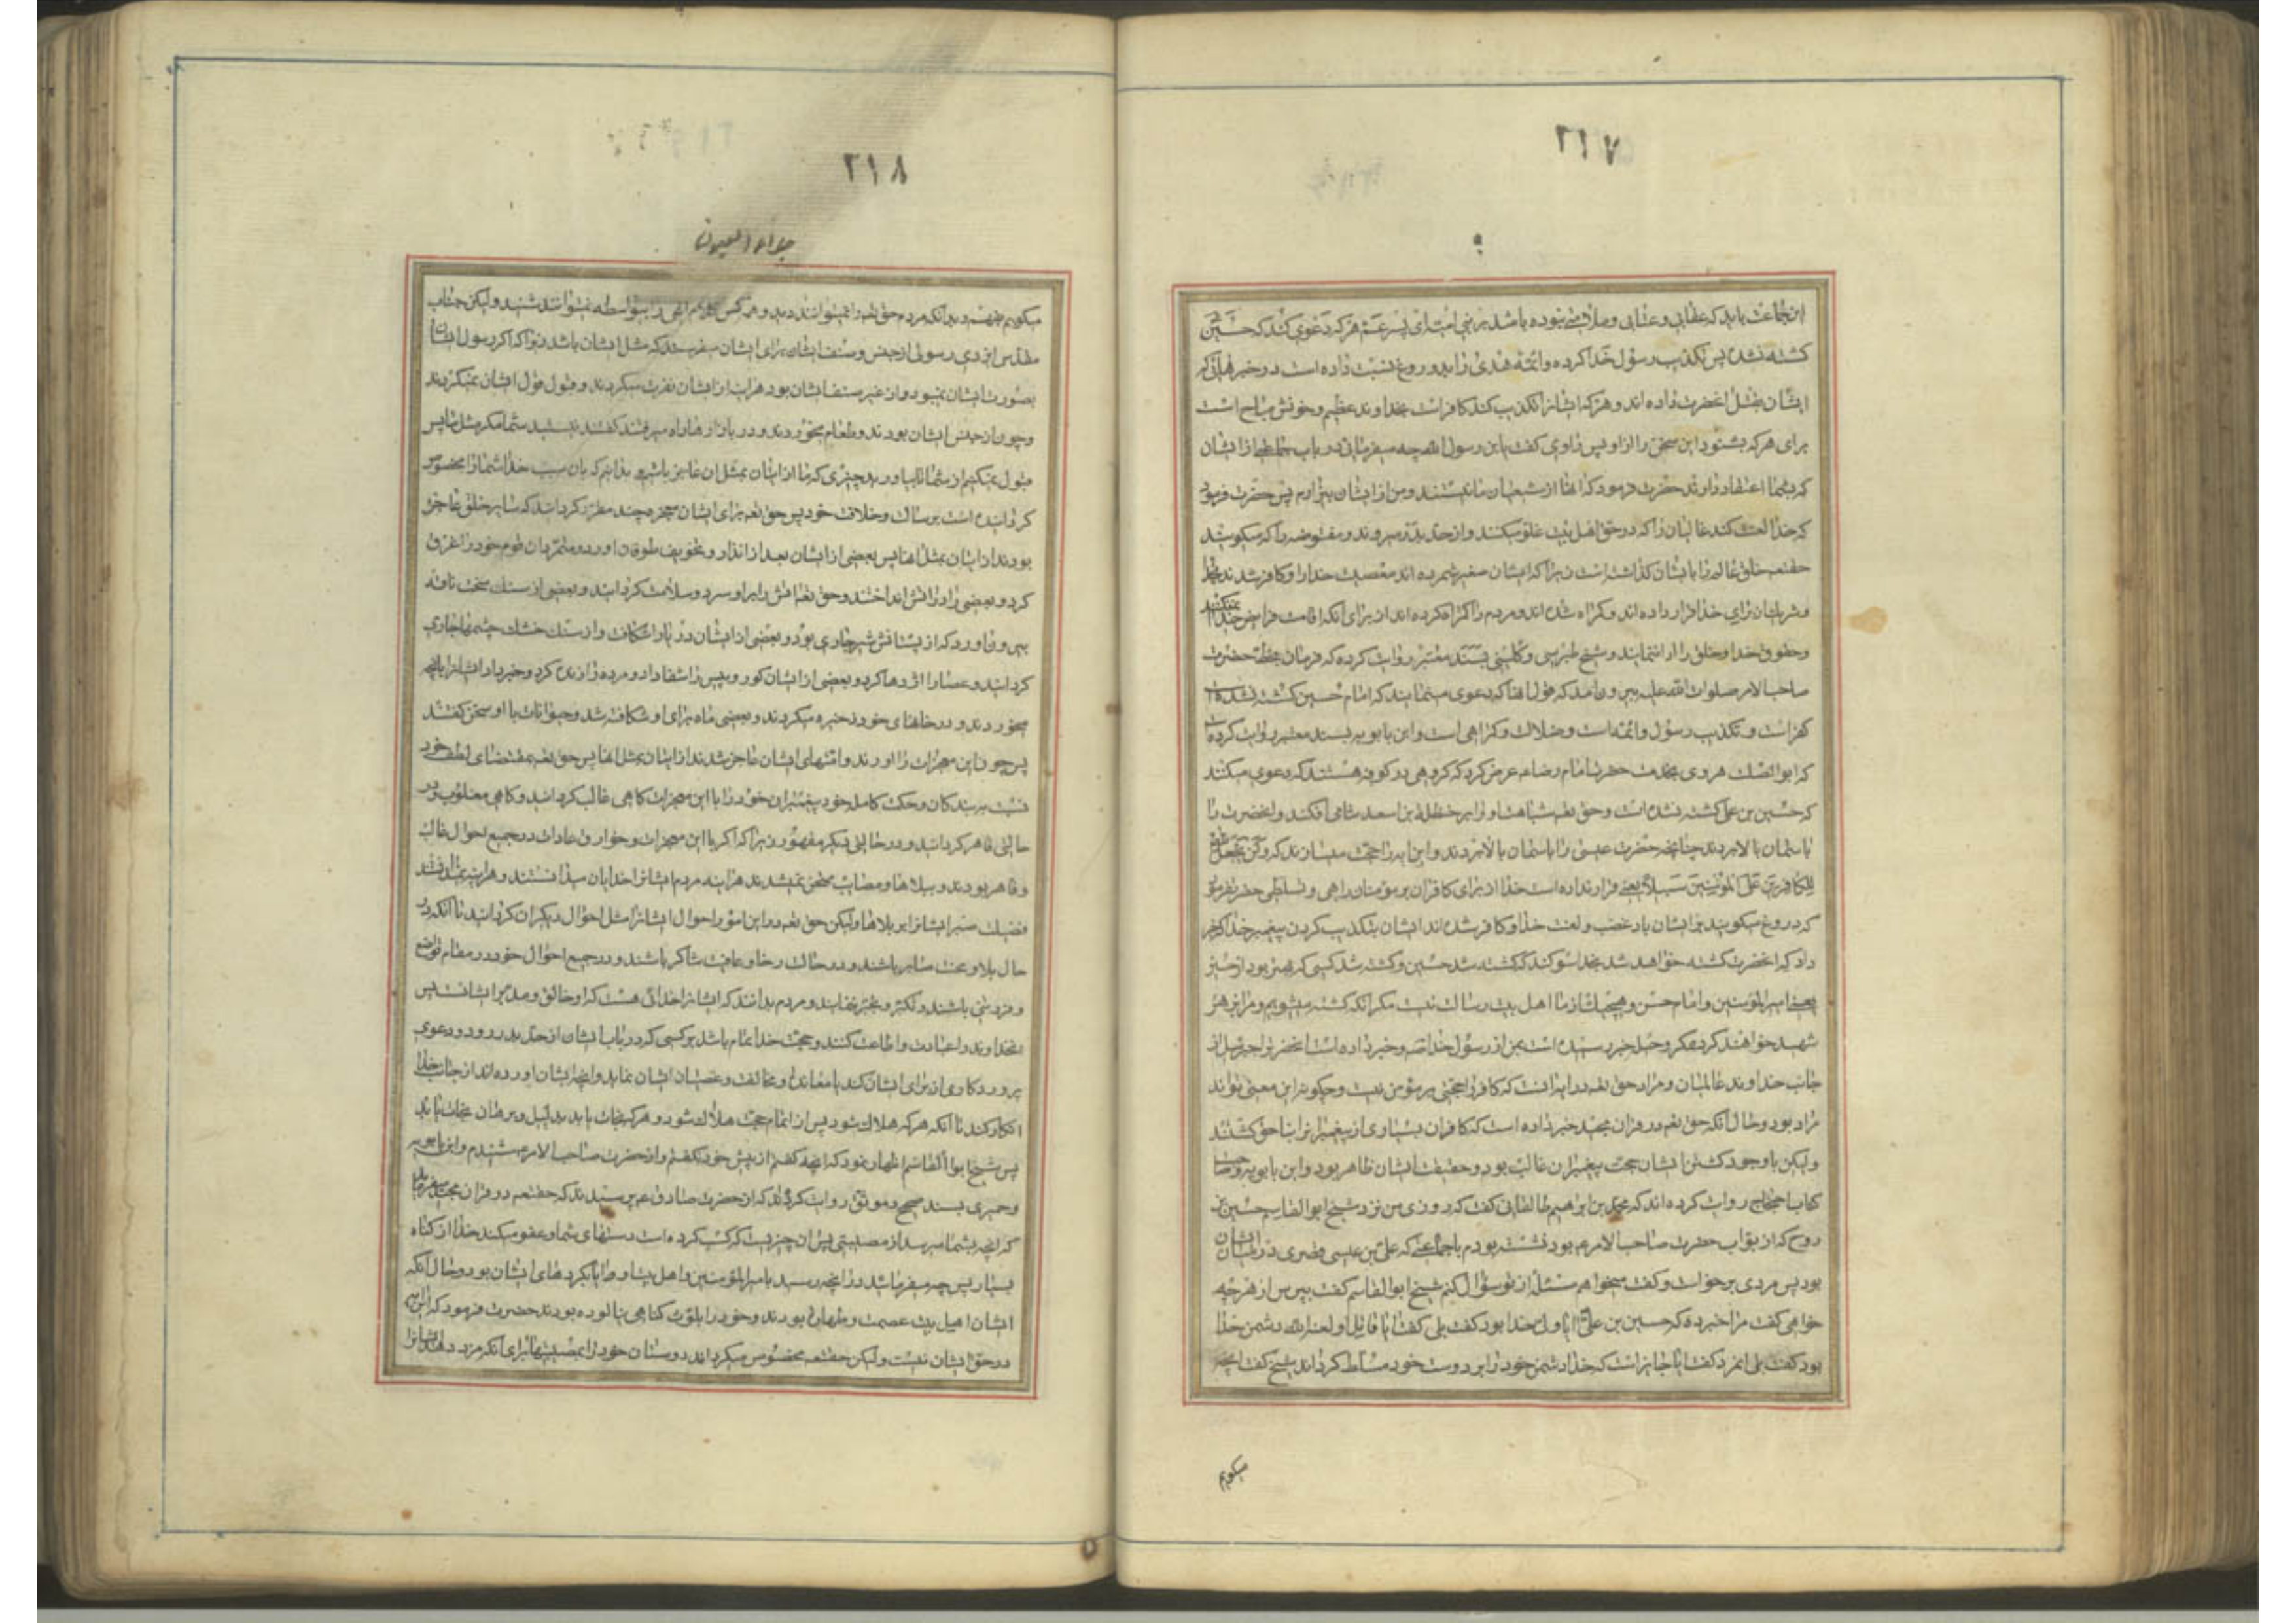 ۲۱۷
این جماعت باید که عقابی و عتابی و ملامتی نبوده باشد بر بنی امیه ای پسر عم هر که دعوی کند که حسین
کشته نشده پس تکذیب رسول خدا کرده و ائمه هدی را بدروغ نسبت داده است در خبرهائی که
ایشان بقتل انحضرت داده اند و هر که ایشانرا تکذیب کند کافر است بخداوند عظیم و خونش مباح است
برای هر که بشنود این سخن را از او پس راوی گفت یا بن رسول الله چه میفرمائی در باب جماعتی از ایشان
که بشما اعتقاد دارند حضرت فرمود که انها از شیعیان ما نیستند و من از ایشان بیزارم پس حضرت فرمود
که خدا لعنت کند غالیان را که در حق اهل بیت غلو میکنند و از حد بدر میروند و مفوضه را که میکویند
حقتعم خلق عالم را بایشان کذاشته است زیرا که ایشان صغیر شمرده اند معصیت خدا را و کافر شدند بخدا
و شریکان برای خدا قرار داده اند و کمراه شده اند و مردم را کمراه کرده اند از برای انکه اقامت فرایض خدا نمیکنند
و حقوق خدا و خلق را ادا ننمایند و شیخ طبرسی و کلینی بسند معتبر روایت کرده که فرمان بخط حضرت
صاحب الامر صلوات الله علیه بیرون امد که قول انها که دعوی مینمایند که امام حسین کشته نشده است
کفر است و تکذیب رسول و ائمه است و ضلالت و کمراهی است و ابن بابویه بسند معتبر روایت کرده است
که ابوالصلت هروی بخدمت حضرت امام رضا عم عرض کرد که کروهی در کوفه هستند که دعوی میکنند
که حسین بن علی کشته نشده است و حق تعم شباهت او را بر حنظلة بن اسعد شامی افکند و انحضرت را
باسمان بالا بردند چنانچه حضرت عیسی را باسمان بالا بردند و این ایه را حجت میسازند که ولن یجعل الله
للکافرین علی المؤمنین سبیلا یعنی قرار نداده است خدا از برای کافران بر مؤمنان راهی و تسلطی حضرت فرمود
که دروغ میکویند بر ایشان باد غضب و لعنت خدا و کافر شده اند ایشان بتکذیب کردن پیغمبر خدا که خبر
داد که انحضرت کشته خواهد شد بخدا سوکند که کشته شد حسین و کشته شد کسی که بهتر بود از حسین
یعنی امیرالمؤمنین و امام حسن و هیچیک از ما اهل بیت رسالت نیست مکر انکه کشته میشویم و مرا بزهر
شهید خواهند کرد بمکر و حیله خبر رسیده است بمن از رسول خدا صه و خبر داده است انحضرت را جبرئیل از
جانب خداوند عالمیان و مراد حق تعم در ایه انست که کافر را حجتی بر مؤمن نیست و چکونه این معنی تواند
مراد بود و حال انکه حق تعم در قران مجید خبر داده است که کافران بسیاری از پیغمبرانرا بناحق کشتند
ولیکن با وجود کشتن ایشان حجت پیغمبران غالب بود و حقیت ایشان ظاهر بود و ابن بابویه و صاحب
کتاب احتجاج روایت کرده اند که محمد بن ابراهیم طالقانی گفت که روزی من نزد شیخ ابوالقاسم حسین بن
روح که از نواب حضرت صاحب الامر عم بود نشسته بودم با جماعتی که علی بن عیسی قصری در میان ایشان
بود پس مردی برخواست و گفت میخواهم مسئلهٔ از تو سؤال کنم شیخ ابوالقاسم گفت بپرس از هر چه
خواهی گفت مرا خبر ده که حسین بن علی ایا ولی خدا بود گفت بلی گفت ایا قاتل او لعنه الله دشمن خدا
بود گفت بلی انمرد گفت ایا جایز است که خدا دشمن خود را بر دوست خود مسلط کرداند شیخ گفت انچه
میکویم
۲۱۸
جلاء العیون
میکویم بفهم و بدانکه مردم حق تعم را نمیتوانند دید و هر کس کلام الهی را بیواسطه نمیتوانند شنید ولیکن جناب
مقدس ایزدی رسولی از جنس و صنف ایشان برای ایشان میفرستد که مثل ایشان باشد زیرا که اکر رسول ایشان
بصورت ایشان نمیبود و از غیر صنف ایشان بود هراینه از ایشان نفرت میکردند و قبول قول ایشان نمیکردند
و چون از جنس ایشان بودند و طعام میخوردند و در بازارها راه میرفتند گفتند نیستید شما مکر مثل ما پس
قبول نمیکنیم از شما تا بیاورید چیزی که ما از اتیان بمثل ان عاجز باشیم بدانیم که بان سبب خدا شما را مخصوص
کردانیده است برسالت و خلافت خود پس حق تعم برای ایشان معجزه چند مقرر کردانید که سایر خلق عاجز
بودند از اتیان بمثل انها پس بعضی از ایشان بعد از انذار و تخویف طوفان اورد و متمردان قوم خود را غرق
کرد و بعضی را در اتش انداختند و حق تعم اتش را بر او سرد و سلامت کردانید و بعضی از سنک سخت ناقه
بیرون اورد که از پستانش شیر جاری بود و بعضی از ایشان دریا را شکافت و از سنک خشک چشمها جاری
کردانید و عصا را اژدها کرد و بعضی از ایشان کور و پیس را شفا داد و مرده را زنده کرد و خبر داد ایشانرا بانچه
میخوردند و در خانهای خود ذخیره میکردند و بعضی ماه برای او شکافته شد و حیوانات با او سخن گفتند
پس چون این معجزات را اوردند و امتهای ایشان عاجز شدند از اتیان بمثل انها پس حق تعم بمقتضای لطف خود
نسبت به بندکان و حکمت کامله خود پیغمبران خود را با این معجزات کاهی غالب کردانید و کاهی مغلوب و در
حالتی قاهر کردانید و در حالتی دیکر مقهور زیرا که اکر با این معجزات و خوارق عادات در جمیع احوال غالب
و قاهر بودند و ببلاها و مصایب ممتحن نمیشدند هراینه مردم ایشانرا خدایان میدانستند و هراینه نمیدانستند
فضیلت صبر ایشانرا بر بلاها ولیکن حق تعم در این امور احوال ایشانرا مثل احوال دیکران کردانید تا انکه در
حال بلا و محنت صابر باشند و در حالت رخا و عافیت شاکر باشند و در جمیع احوال خود در مقام تواضع
و فروتنی باشند و تکبر و تجبر ننمایند و مردم بدانند که ایشانرا خدائی هست که او خالق و مدبر ایشانست پس
انخداوند را عبادت و اطاعت کنند و حجت خدا تمام باشد بر کسی که در باب ایشان از حد بدر رود و دعوی
پروردکاری از برای ایشان کند یا معانده و مخالفت و عصیان ایشان نماید و انچه ایشان اورده اند از جانب خدا
انکار کند تا انکه هر که هلاک شود پس از اتمام حجت هلاک شود و هر که نجات یابد بدلیل و برهان نجات یابد
پس شیخ ابوالقاسم اظهار نمود که انچه گفتم از پیش خود نگفتم و از حضرت صاحب الامر عم شنیدم و ابن بابویه
و حمیری بسند صحیح و موثق روایت کرده اند که از حضرت صادق عم پرسیدند که حقتعم در قران مجید میفرماید
که انچه بشما میرسد از مصیبتی پس ان چیزیست که کسب کرده است دستهای شما و عفو میکند خدا از کناه
بسیار پس چه میفرمائید در انچه رسید بامیرالمؤمنین و اهل بیت او ایا بکردهای ایشان بود و حال انکه
ایشان اهل بیت عصمت و طهارت بودند و خود را بلوث کناهی نیالوده بودند حضرت فرمود که این ایه
در حق ایشان نیست ولیکن حقتعم مخصوص میکرداند دوستان خود را بمصیبتها برای انکه مزد دهد ایشانرا